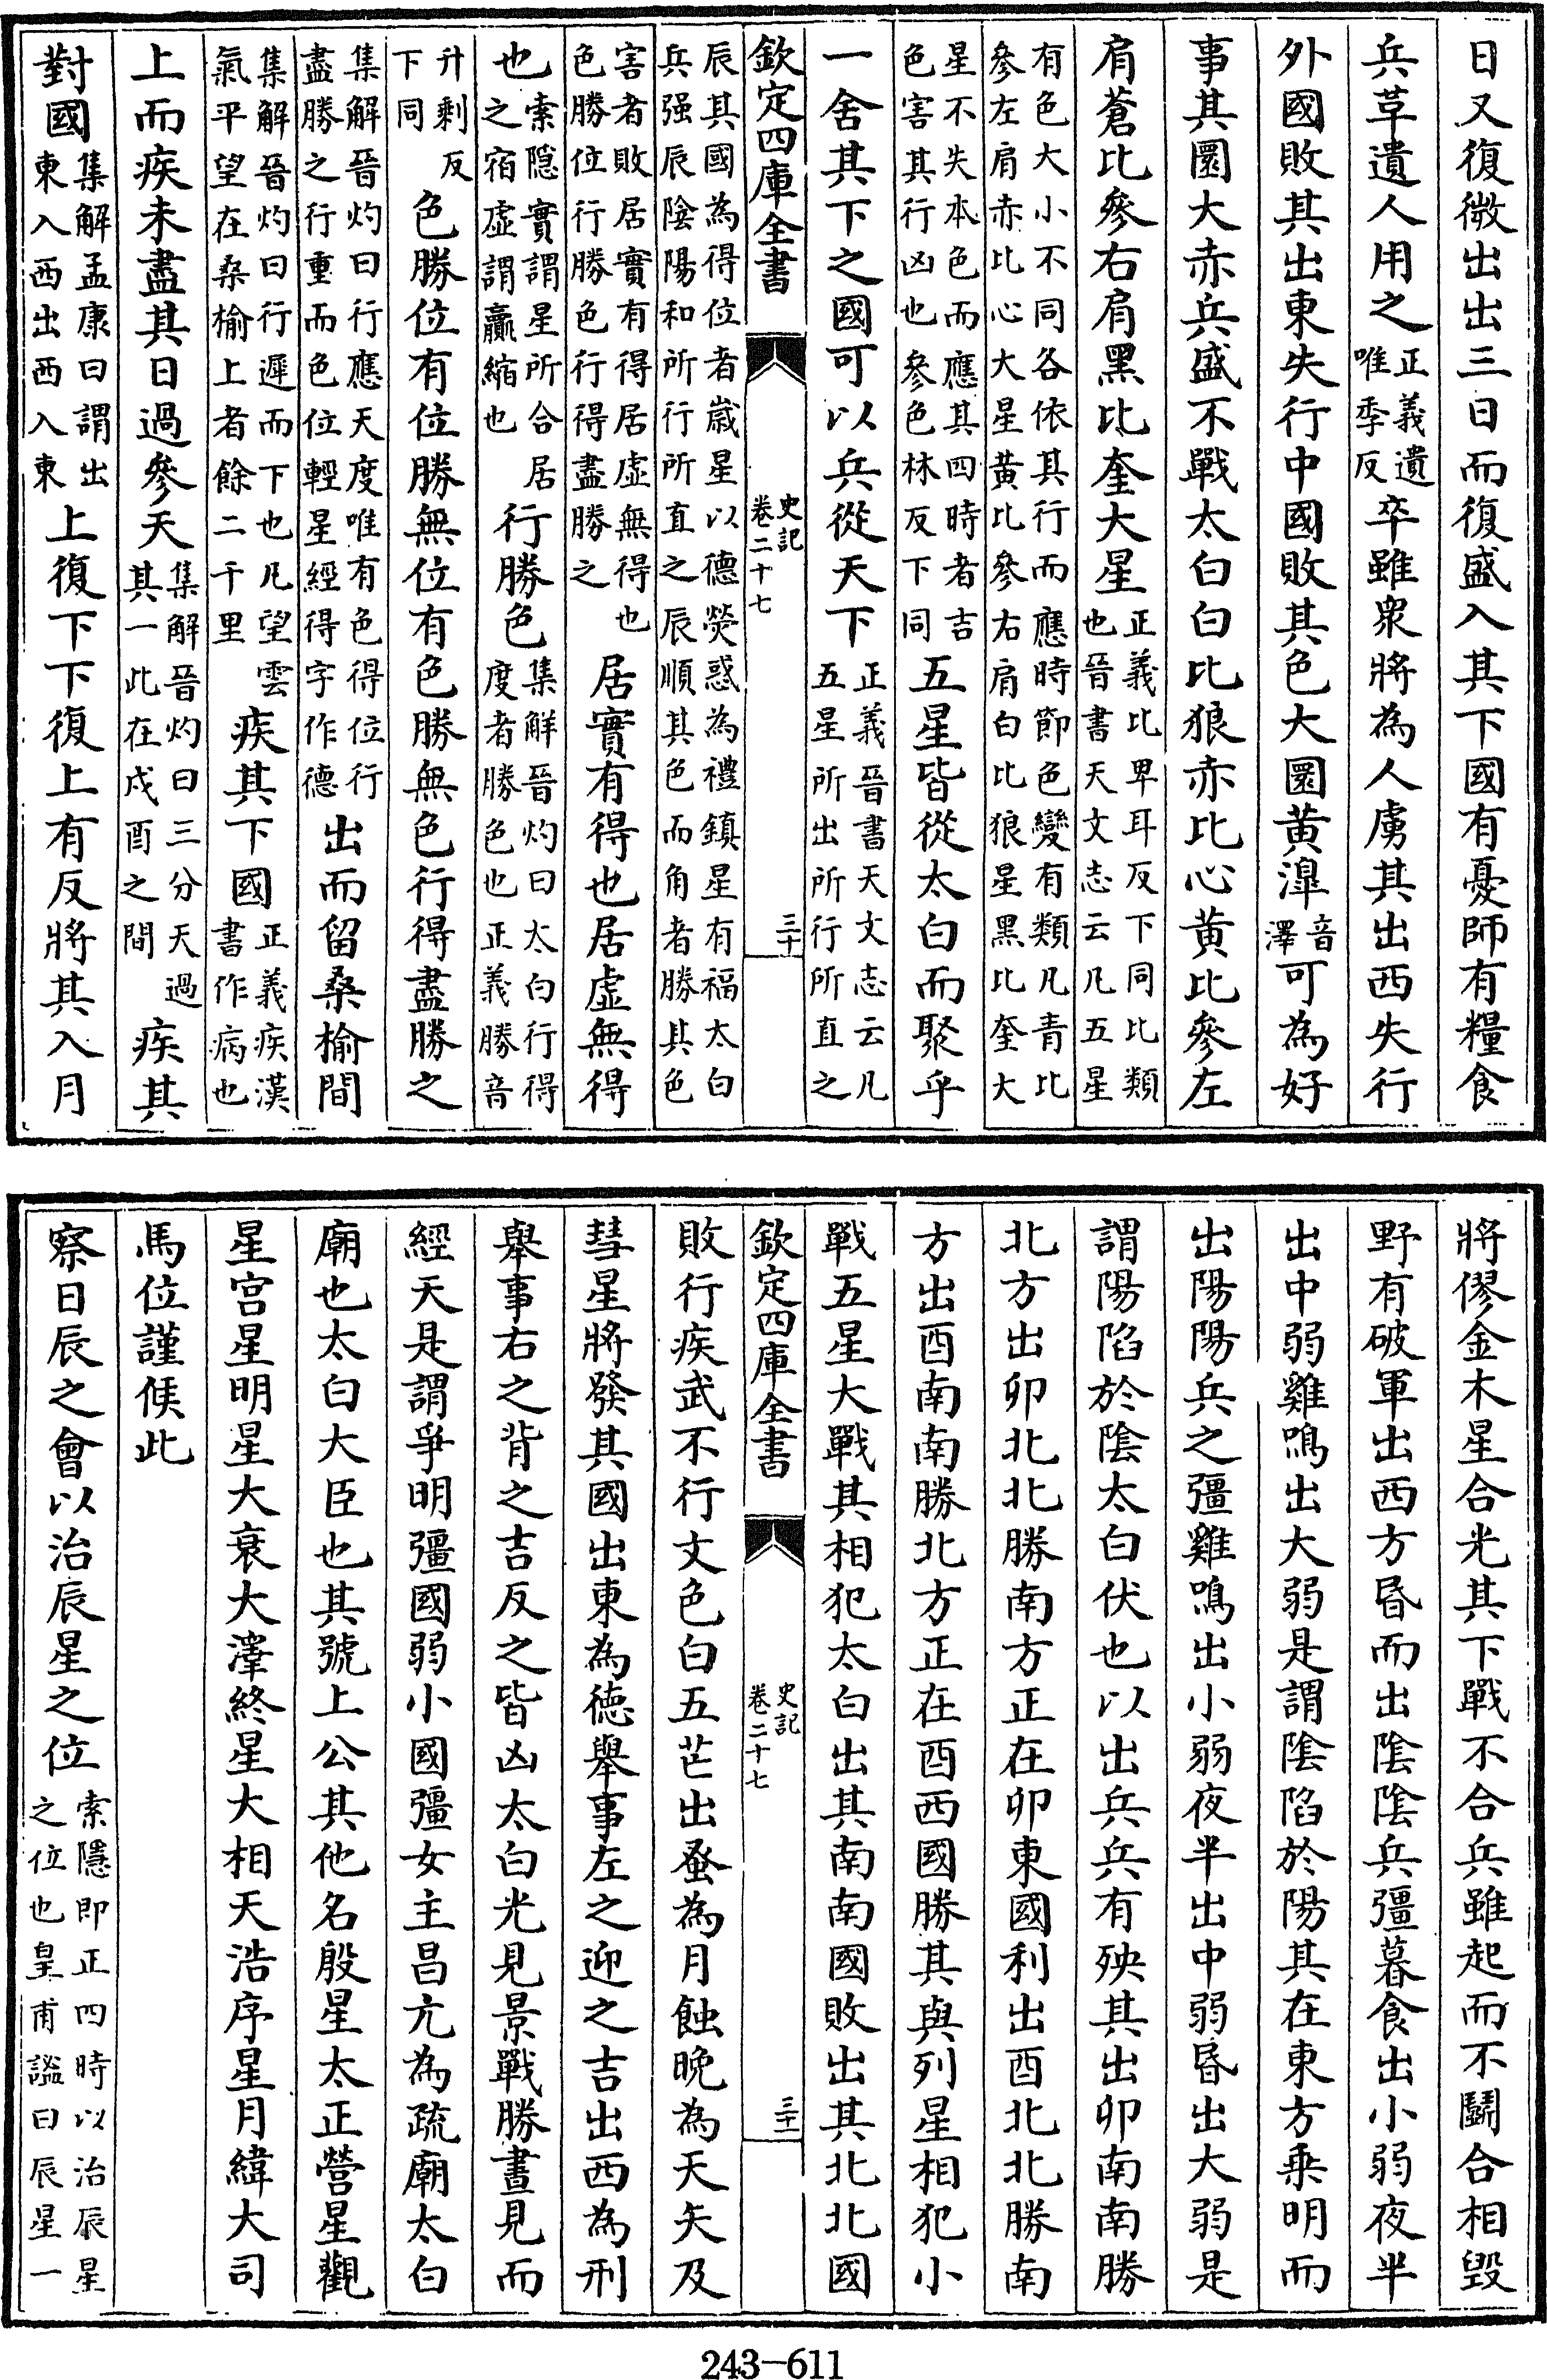 日又復微出出三日而復盛入其下國有憂師有糧食
兵革遺人用之正義遺唯季反卒雖衆將為人虜其出西失行
外國敗其出東失行中國敗其色大圜黄滜音澤可為好
事其圜大赤兵盛不戰太白白比狼赤比心黄比參左
肩蒼比參右肩黑比奎大星正義比卑耳反下同比類也晉書天文志云凡五星
有色大小不同各依其行而應時節色變有類凡青比參左肩赤比心大星黄比參右肩白比狼星黑比奎大
星不失本色而應其四時者吉色害其行凶也參色林反下同五星皆從太白而聚乎
一舍其下之國可以兵從天下正義晉書天文志云凡五星所出所行所直之
欽定四庫全書 史記卷二十七 三十
辰其國為得位者歲星以德熒惑為禮鎮星有福太白兵强辰陰陽和所行所直之辰順其色而角者勝其色
害者敗居實有得居虛無得也色勝位行勝色行得盡勝之居實有得也居虛無得
也索隱實謂星所合居之宿虛謂贏縮也行勝色集解晉灼曰太白行得度者勝色也正義勝音
升剩反下同色勝位有位勝無位有色勝無色行得盡勝之
集解晉灼曰行應天度唯有色得位行盡勝之行重而色位輕星經得字作德出而留桑榆間
集解晉灼曰行遲而下也凡望雲氣平望在桑榆上者餘二千里疾其下國正義疾漢書作病也
上而疾未盡其日過參天集解晉灼曰三分天過其一此在戌酉之間疾其
對國集解孟康曰謂出東入西出西入東上復下下復上有反將其入月
將僇金木星合光其下戰不合兵雖起而不鬭合相毀
野有破軍出西方昏而出陰陰兵彊暮食出小弱夜半
出中弱雞鳴出大弱是謂陰陷於陽其在東方乘明而
出陽陽兵之彊雞鳴出小弱夜半出中弱昏出大弱是
謂陽陷於陰太白伏也以出兵兵有殃其出卯南南勝
北方出卯北北勝南方正在卯東國利出酉北北勝南
方出酉南南勝北方正在酉西國勝其與列星相犯小
戰五星大戰其相犯太白出其南南國敗出其北北國
欽定四庫全書 史記卷二十七 三十一
敗行疾武不行文色白五芒出蚤為月蝕晚為天矢及
彗星將發其國出東為德舉事左之迎之吉出西為刑
舉事右之背之吉反之皆凶太白光見景戰勝晝見而
經天是謂爭明彊國弱小國彊女主昌亢為疏廟太白
廟也太白大臣也其號上公其他名殷星太正營星觀
星宫星明星大衰大澤終星大相天浩序星月緯大司
馬位謹候此
察日辰之會以治辰星之位索隱即正四時以治辰星之位也皇甫謐曰辰星一
243-611